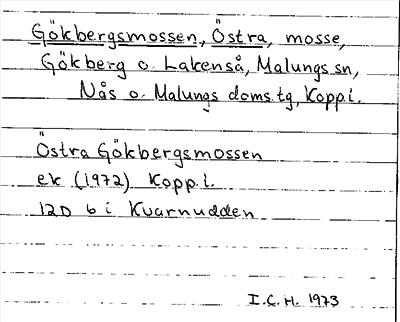 Gökbergsmossen, Östra, mosse,
Gökberg o. Lakenså, Malungs sn,
Nås o. Malungs doms.tg, Kopp.l.
Östra Gökbergsmossen
ek (1972) Kopp.l.
12D 6 i Kvarnudden
I.C.H. 1973